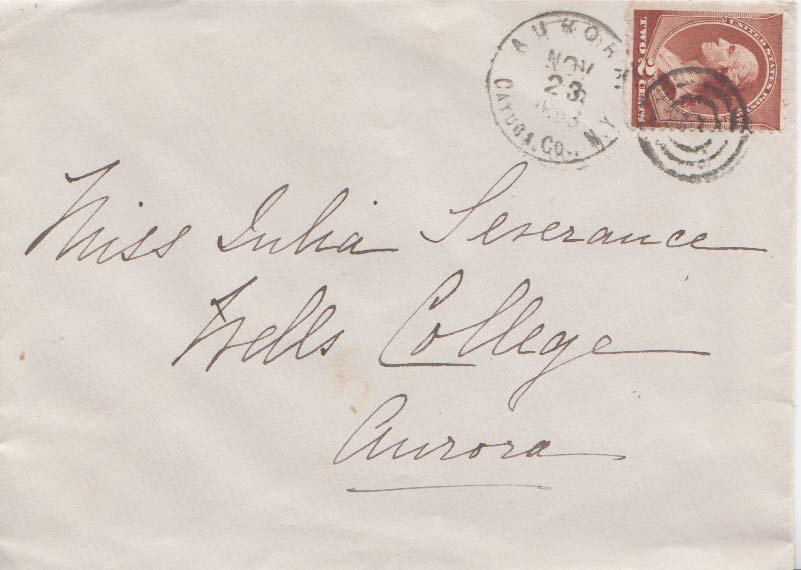 AURORA
NOV
23
CAYUGA. CO., N.Y.
UNITED STATES POSTAGE
TWO 2 CENTS
Miss Julia Severance
Wells College
Aurora